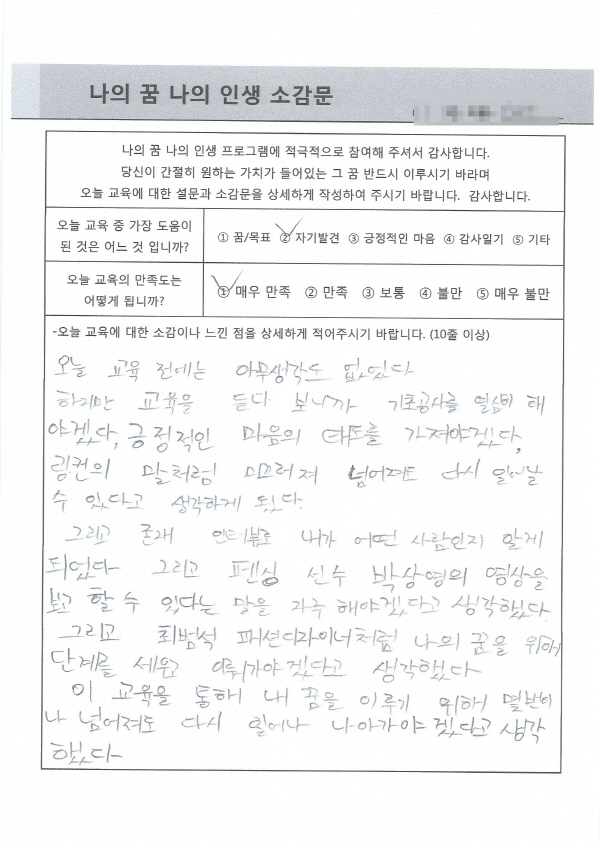 나의 꿈 나의 인생 소감문
나의 꿈 나의 인생 프로그램에 적극적으로 참여해 주셔서 감사합니다.
당신이 간절히 원하는 가치가 들어있는 그 꿈 반드시 이루시기 바라며
오늘 교육에 대한 설문과 소감문을 상세하게 작성하여 주시기 바랍니다. 감사합니다.
오늘 교육 중 가장 도움이
된 것은 어느 것 입니까?
① 꿈/목표 ② 자기발견 ③ 긍정적인 마음 ④ 감사일기 ⑤ 기타
오늘 교육의 만족도는
어떻게 됩니까?
① 매우 만족 ② 만족 ③ 보통 ④ 불만 ⑤ 매우 불만
-오늘 교육에 대한 소감이나 느낀 점을 상세하게 적어주시기 바랍니다. (10줄 이상)
오늘 교육 전에는 아무생각도 없었다
하지만 교육을 듣다 보니까 기초공사를 열심히 해
야겠다, 긍정적인 마음의 태도를 가져야겠다,
링컨의 말처럼 미끄러져 넘어져도 다시 일어날
수 있다고 생각하게 됬다.
그리고 존재 인터뷰로 내가 어떤 사람인지 알게
되었다 그리고 펜싱 선수 박상영의 영상을
보고 할 수 있다는 말을 자주 해야겠다고 생각했다.
그리고 최범석 패션디자이너처럼 나의 꿈을 위해
단계를 세우고 이뤄가야겠다고 생각했다
이 교육을 통해 내 꿈을 이루기 위해 몇번이
나 넘어져도 다시 일어나 나아가야 겠다고 생각
했다